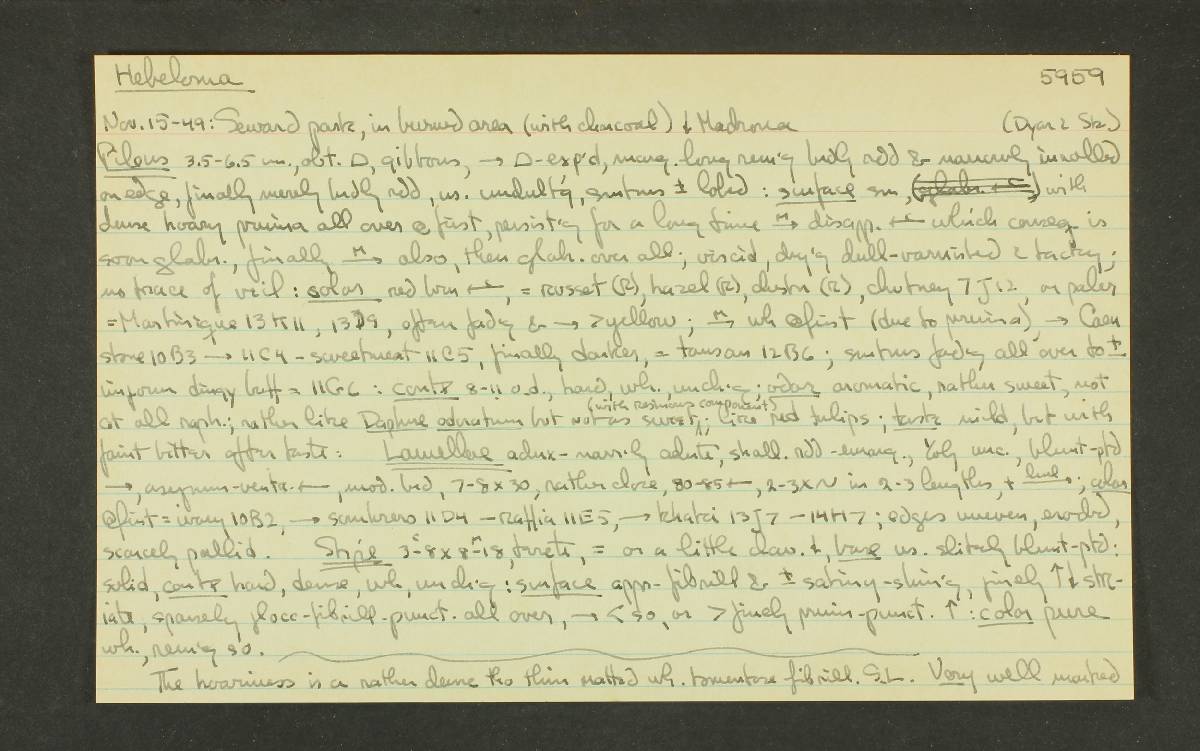 Hebeloma 5959
Nov. 15-49: Seward park, in burned area (with charcoal) ↓ Madrona (Dyar & Stz.)
Pileus 3.5-6.5 cm., obt. D, gibbous, → D-exp'd, marg. long rem'g bdly rdd & narrowly inrolled
on edge, finally merely bdly rdd, us. undult'g, smtms ± lobed : surface sm., with
dense hoary pruina all over @ first, persist'g for a long time M→ disapp. ←C which convex is
soon glabr., finally M→ also, then glab. over all; viscid, dry'g dull-varnished & tacky;
no trace of veil : color red brn ←C, = russet (R), hazel (R), (R), chutney 7J12, or paler
= Martinique 13H11, 13D9, often fad'g & → > yellow; M→ wh @ first (due to pruina) → Caen
stone 10B3 → 11C4 - sweetmeat 11C5, finally darker, = tansan 12B6; smtms fad'g all over to ±
uniform dingy buff = 11G6 : contx 8-11 o.d., hard, wh., unch'g; odor aromatic, rather sweet, not
at all raph.; rather like Daphne odoratum but not as sweet, (with resinous component); like red tulips; taste mild, but with
faint bitter after taste: Lamellae adnx-narr'ly adnte, shall. rdd-emarg., unc., blunt-ptd
→, asymm-ventr. ←, mod. bd, 7-8 x 30, rather close, 80-85 ←, 2-3xN in 2-3 lengths, + →; color
@ first = ivory 10B2, → sombrero 11D4 - Raffia 11E5, → khaki 13J7 - 14H7; edges uneven, eroded,
scarcely pallid. Stipe 3-8 x 8-18, terete, = or a little clav. ↓, base us. slitely blunt-ptd:
solid, contx hard, dense, wh, unch'g : surface appr-fibrill & ± satiny-shin'g, finely ↑↓ str-
iate, sparsely flocc-fibrill-punct. all over, → < so, or > finely pruin-punct. ↑ : color pure
wh., rem'g so.
The hoariness is a rather dense tho thin matted wh. tomentose fibrill. S.L. Very well marked